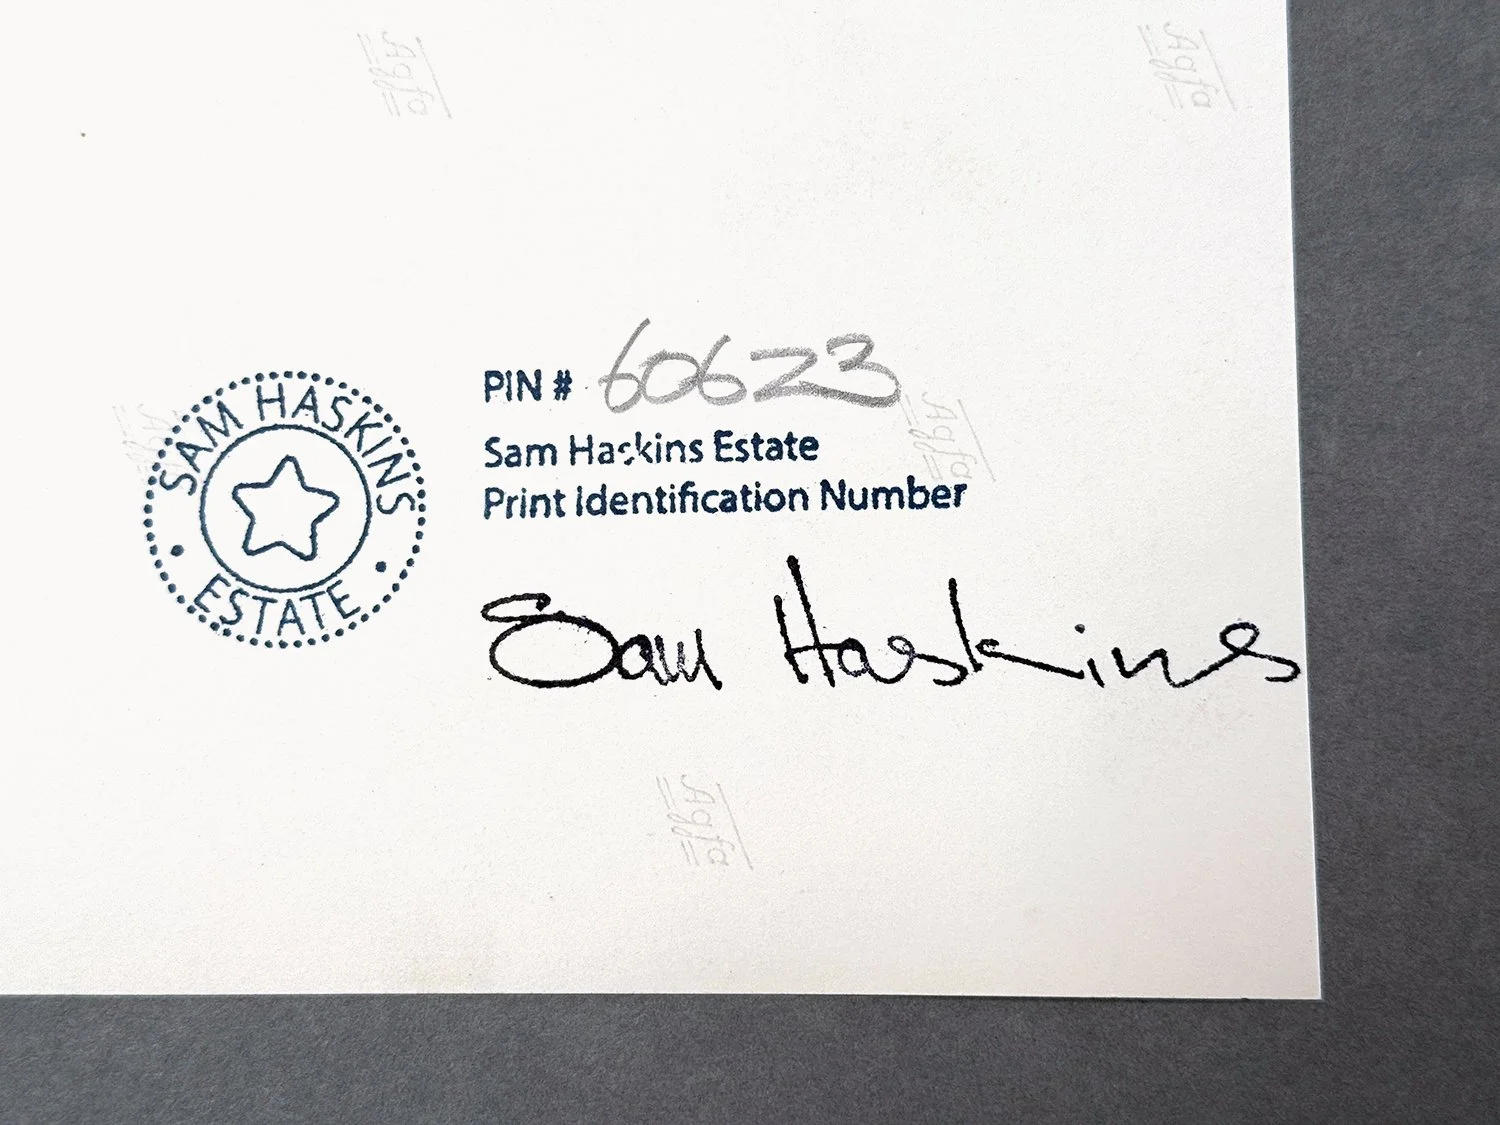 Agfa Agfa
SAM HASKINS
ESTATE
PIN # 60623
Sam Haskins Estate
Print Identification Number
Agfa
Agfa
Sam Haskins
Agfa